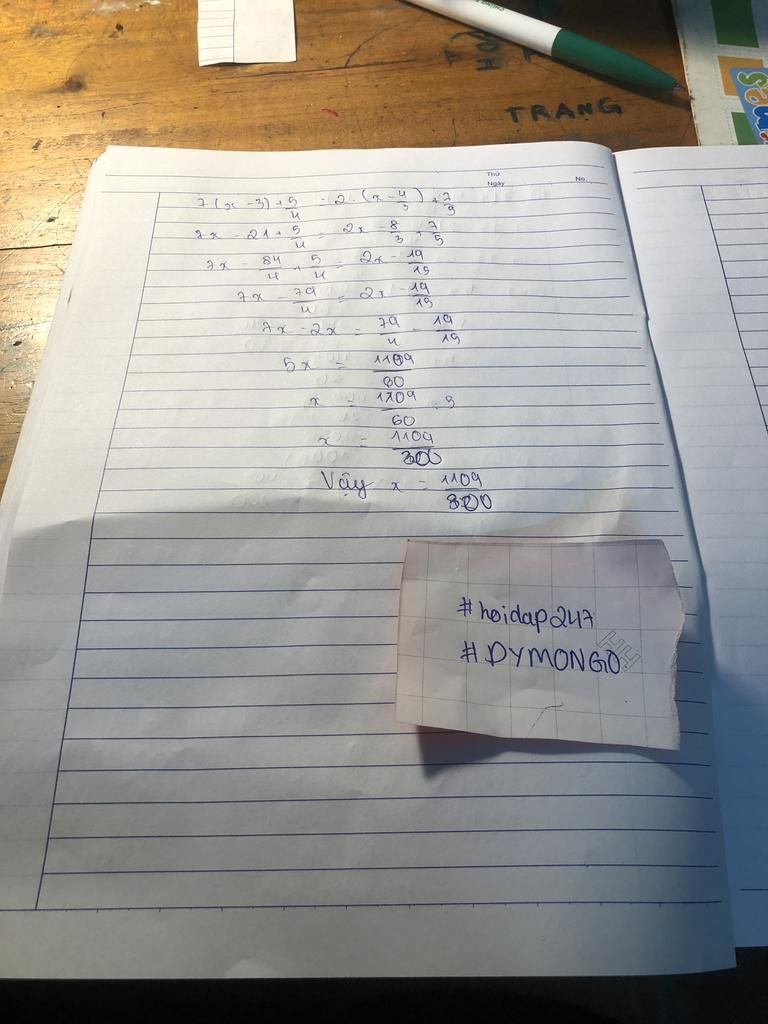 TRANG
Thứ
Ngày
No.
7(x - 3) + 5/4 = 2.(x - 4/3) + 7/5
7x - 21 + 5/4 = 2x - 8/3 + 7/5
7x - 84/4 + 5/4 = 2x - 19/15
7x - 79/4 = 2x - 19/15
7x - 2x = 79/4 - 19/15
5x = 1109/60
x = 1109/60 : 5
x = 1109/300
Vậy x = 1109/300
#hoidap247
#DYMONGO